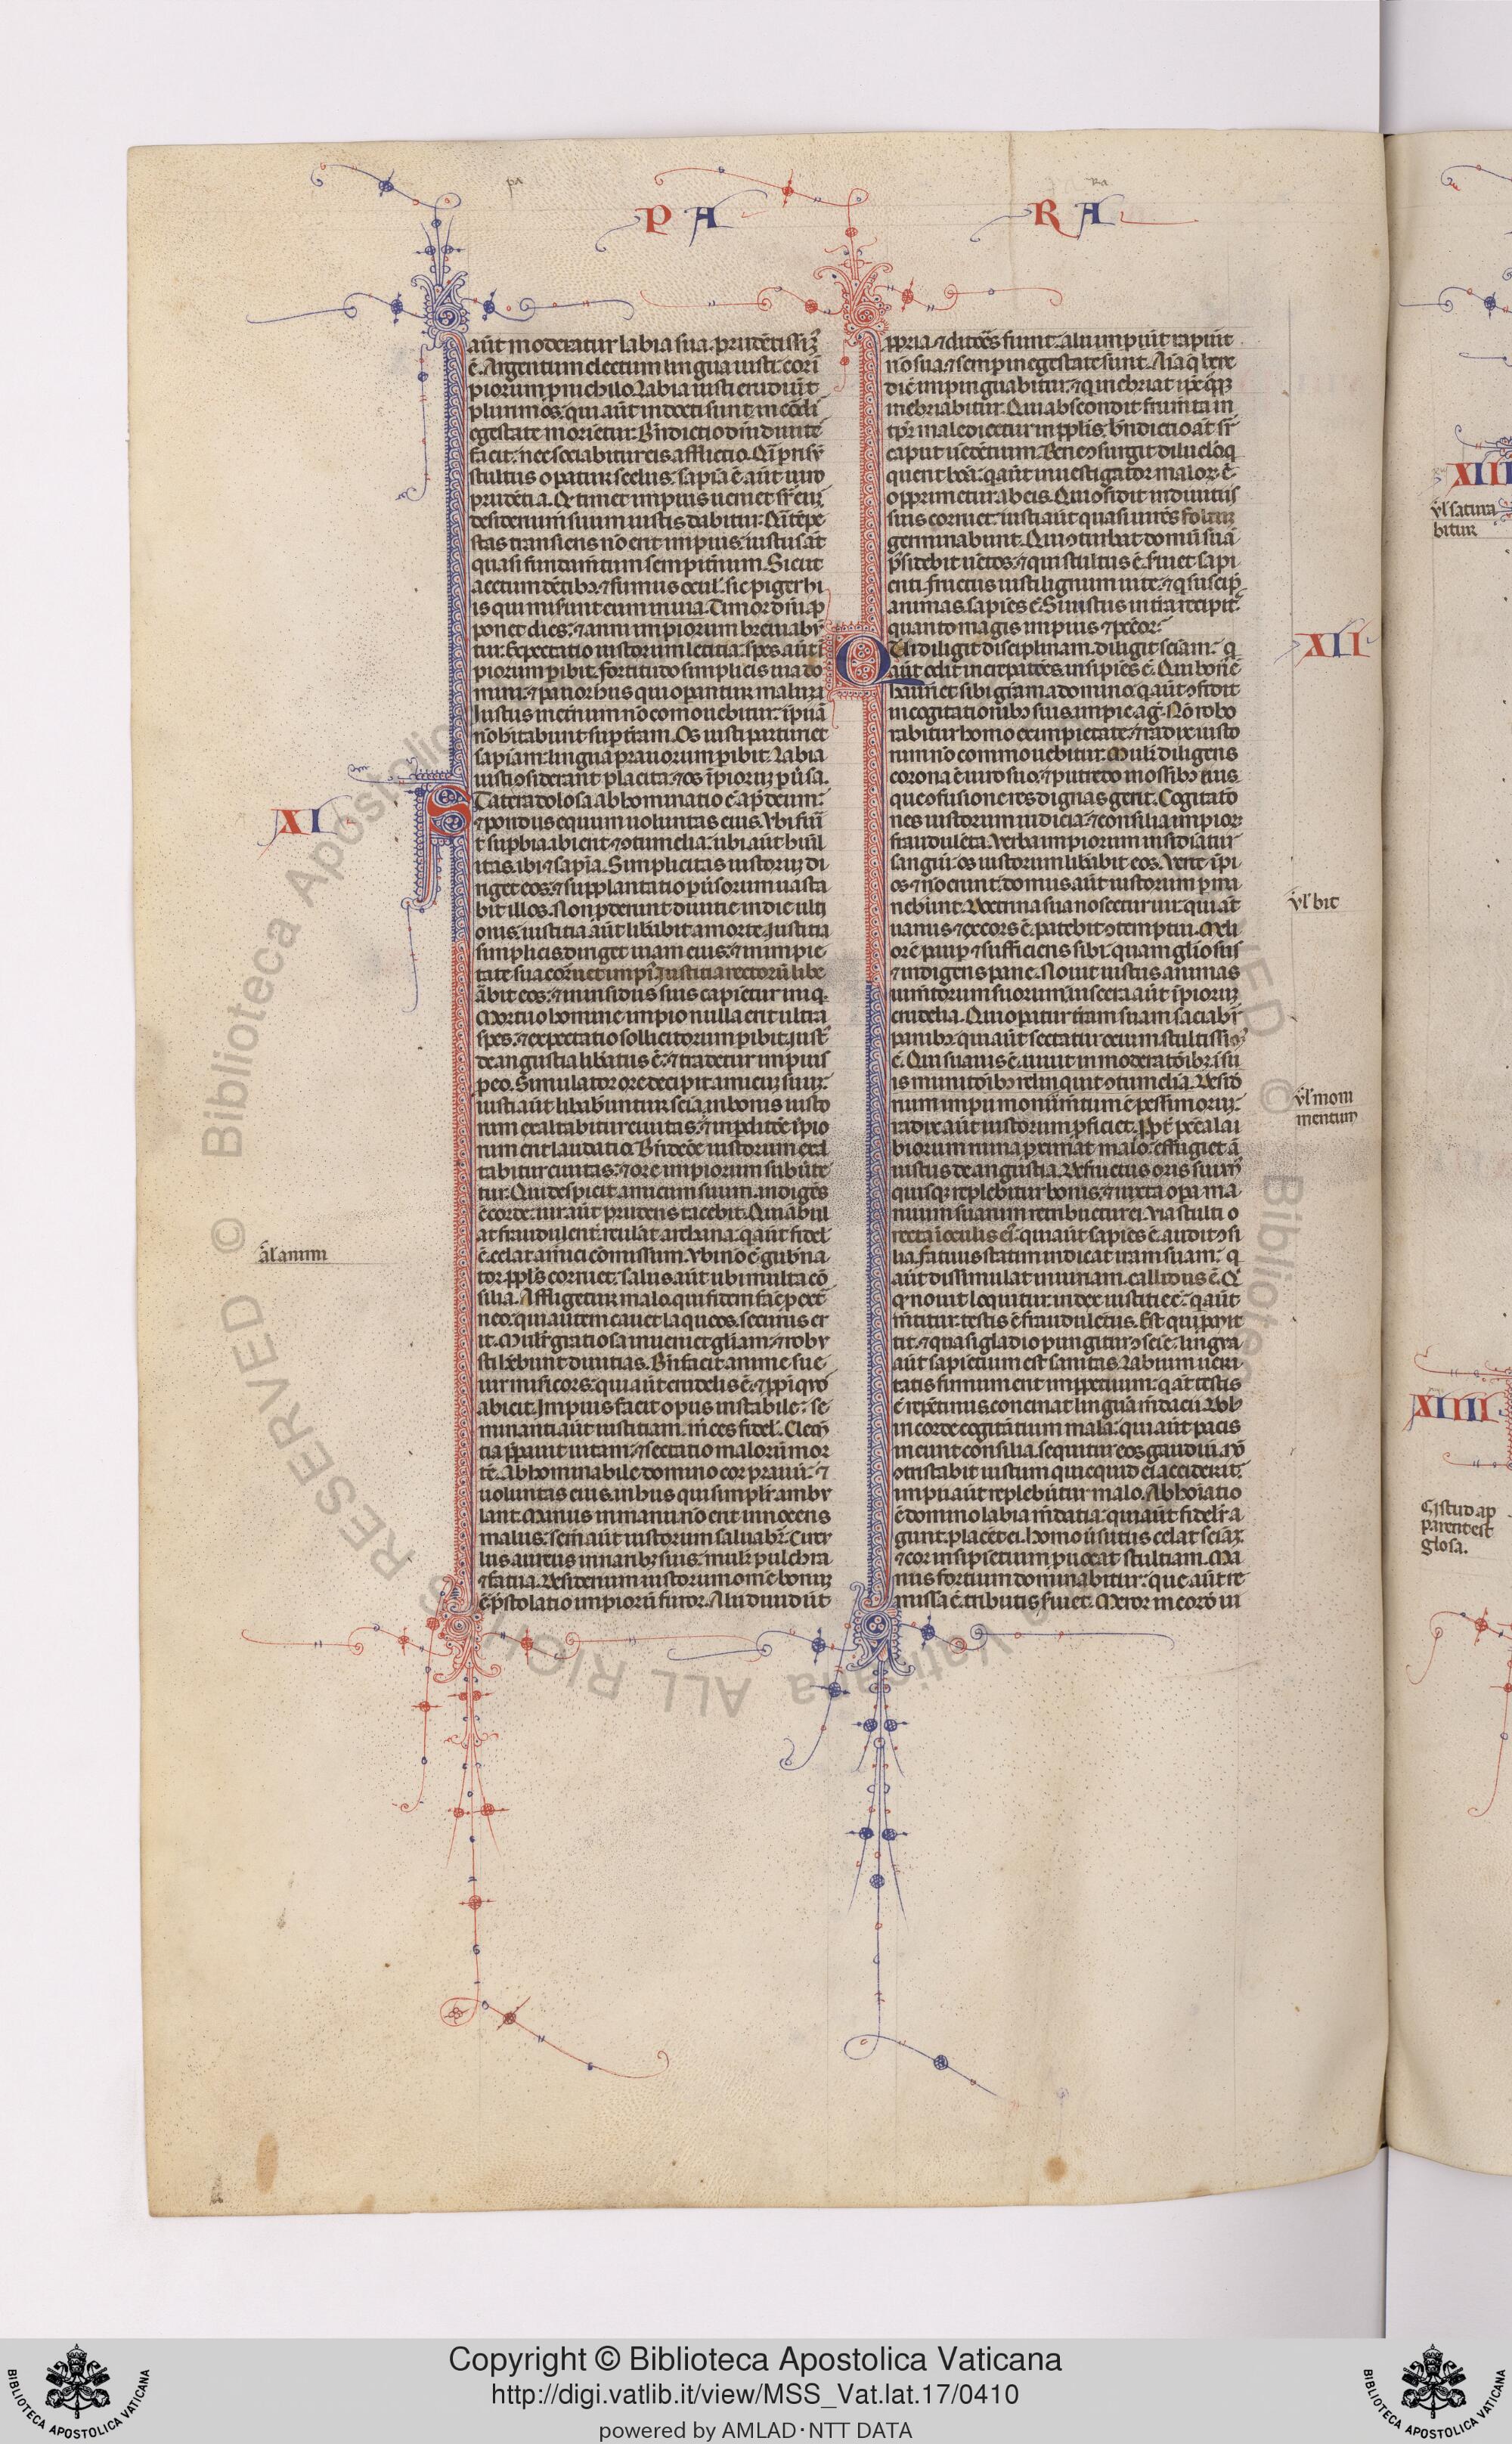 PA RA
aūt moderatur labia sua. prudētissimꝰ
ē. Argentum electum lingua iusti: cor im
piorum pro nichilo. Labia iusti erudiūt
plurimos: qui aūt indocti sunt in cordis
egestate morietur. Bn̄dictio dn̄i diuite
facit: nec sociabitur eis afflictio.
stultus opatur scelus: sapīa ē aūt uiro
prudētia. Qd̄ timet impius ueniet sr̄ eū:
desiderium suum iustis dabitur.
stas transiens nō erit impius: iustus aūt
quasi fundam̄tum sempitnum. Sicut
acetum dētibꝫ ⁊ fumus ocul̓: sic piger hi
is qui miserunt eum in uia. Timor dn̄i ap
ponet dies: ⁊ anni impiorum breuiabū
tur. Expectatio iustorum letitia: spes aūt ī
piorum pibit. Fortitudo simplicis uia do
mini: ⁊ pauor his qui opantur malum.
Iustus in et̄num nō comouebitur: īpii aūt
nō habitabunt sup tram. Os iusti parturiet
sapīam: lingua prauorum pibit. Labia
iusti ɔsiderant placita: ⁊ os īpiorum puersa.
XI
Statera dolosa abhominatio ē apd̄ deum:
⁊ pondus equum uoluntas eius. Vbi fuīt
t supbia ibi erit ⁊ ɔtumelia: ubi aūt humil
itas. ibi ⁊ sapīa. Simplicitas iustorum di
riget eos: ⁊ supplantatio puersorum uasta
bit illos. Non pderunt diuitie in die ulti
onis: iustitia aūt libabit a morte. Iustitia
simplicis diriget uiam eius: ⁊ in impie
tate sua corruet impiꝰ. Iustitia rectorū libe
rabit eos: ⁊ in insidiis suis capietur iniq.
Mortuo homine impio nulla erit ultra
spes: ⁊ expectatio sollicitorum pibit. Iustꝰ
de angustia libatus ē: ⁊ tradetur impius
p eo. Simulator ore decipit amicum suum:
iusti aūt libabuntur scīa. in bonis iusto
rum exaltabitur ciuitas: ⁊ in pditōe īpio
rum erit laudatio. Bn̄dictōe iustorum exal
tabitur ciuitas: ⁊ ore impiorum subūte
tur. Qui despicit amicum suum. indigēs
ē corde: uir aūt prudens tacebit. Qui ābul
at fraudulent̄. reuelat archana: q aūt fidel̓
āl̓ animi
ē. celat amici cōmissum. Vbi nō ē gubna
tor. ppl̓s corruet: salus aūt ubi multa cō
silia. Affligetur malo. qui fidem facit p extra
neo: qui autem cauet laqueos. securus er
it. Mulier gratiosa inueniet gl̓iam: ⁊ robu
sti hēbunt diuitias. Bn̄ facit anime sue
uir miseicors: qui aūt crudelis ē. ⁊ ppīqꝰs
abicit. Impius facit opus instabile: se
minanti aūt iustitiam. m̄ces fidel̓. Clemen
tia pparauit uitam: ⁊ sectatio malorū mor
tē. Abhominabile domino cor prauū: ⁊
uoluntas eius. in his qui simplr̄ ambu
lant. Manus in manu nō erit innocens
malus: sem̄ aūt iustorum saluabr̄. Circu
lus aureus in naribꝫ suis: mulier pulchra
⁊ fatua. Desiderium iustorum om̄e bonum
ē: p̄stolatio impiorū furor. Alii diuidūt
ppria. ⁊ ditiores fiunt: alii impii nt rapiūt
nō sua. ⁊ semp in egestate sunt. Aīa q bene
dic̄ impinguabitur: ⁊ qui inebriat ipe quoque
inebriabitur. Qui abscondit frum̄ta in
tpr̄. maledicetur in ppl̓is: bn̄dictio aūt sr̄
caput uēdētium. Bene ɔsurgit diluculo q
querit bōa: q aūt inuestigator malorum ē.
opprimetur ab eis. Qui ɔfidit in diuitiis
suis corruet: iusti aūt quasi uirēs folium
germinabunt. Qui ɔturbat domū suā
p̄sidebit uētos: ⁊ qui stultus ē. seruiet sapi
enti. Fructus iusti lignum uite: ⁊ q suscipit
animas. sapiēs ē. Si iustus in tra recipit:
quanto magis impius ⁊ pccōr.
XII
Qui diligit disciplinam. diligit sciam: q
aūt odit increpatōes. insipiēs ē. Qui bonꝰ ē
hauriet sibi gr̄am a domino: q aūt ɔfidit
in cogitationibꝫ suis. impie agit. Nō robo
rabitur homo ex impietate: ⁊ radix iusto
rum nō commouebitur. Mulier diligens
corona ē uiro suo: ⁊ putredo in ossibꝫ eius.
que ɔfusione res dignas gerit. Cogitatio
nes iustorum iudicia: ⁊ consilia impiorum
fraudulēta. Verba impiorum insidiātur
sangui: os iustorum libabit eos. Verte īpi
os ⁊ nō erunt: domus aūt iustorum pma
nebūnt. Doctrina sua noscetur uir: qui aūt
ul̓ bit
uanus ⁊ excors ē. patebit ɔtemptui. Meli
or ē paup ⁊ sufficiens sibi: quam gl̓iosus
⁊ indigens pane. Nouit iustus animas
iumtorum suorum: uiscera aūt īpiorum
crudelia. Qui opatur tram suam saciabr̄
panibꝫ: qui aūt sectatur ocium. stultissimꝰ
ē. Qui suauis ē. uiuit in moderatōibꝫ: ī su
is munitōibꝫ relinquit ɔtumeliā. Desideri
um impii monumtum ē pessimorum:
ul̓ moni
mentum
radix aūt iustorum pficiet. Ppt̄ pccā lai
biorum ruina proximat malo: effugiet aūt
iustus de angustia. De fructus oris sui un
quisqꝫ replebitur bonis: ⁊ iuxta opa ma
nuum suarum retribuetur ei. Via stulti
recta ī oculis eiꝰ: qui aūt sapiēs ē. audit ɔsi
lia. Fatuus statim indicat iram suam: q
aūt dissimulat iniuriam. callidus ē. Qi
qd̄ nouit loquitur. index iustitie ē: q aūt
m̄titur. testis ē fraudulētus. Est qui pmit
tit. ⁊ quasi gladio pungitur ɔscīe: lingua
aūt sapiētium est sanitas. Labium ueri
tatis firmum erit imppetuum: q aūt testis
ē repētinus. concinat linguā m̄dacii. Dolꝰ
in corde cogitātium mala: qui aūt pacis
ineunt consilia. sequitur eos gaudiū. Nō
ɔtristabit iustum quicquid ei acciderit:
impii aūt replebūtur malo. Abhoīatio
ē domino labia m̄datia: qui aūt fidelr̄ a
gunt. placēt ei. homo ūsutus celat sciam:
⁊ cor insipiētium puocat stultitiam. Ma
nus fortium dominabitur: que aūt re
missa ē. tributis seruiet. Meror in corde ui
XIII
ul̓ satura
bitur
XIIII
istud ap
parent est
glosa.
Copyright © Biblioteca Apostolica Vaticana
http://digi.vatlib.it/view/MSS_Vat.lat.17/0410
powered by AMLAD·NTT DATA
BIBLIOTECA APOSTOLICA VATICANA
BIBLIOTECA APOSTOLICA VATICANA